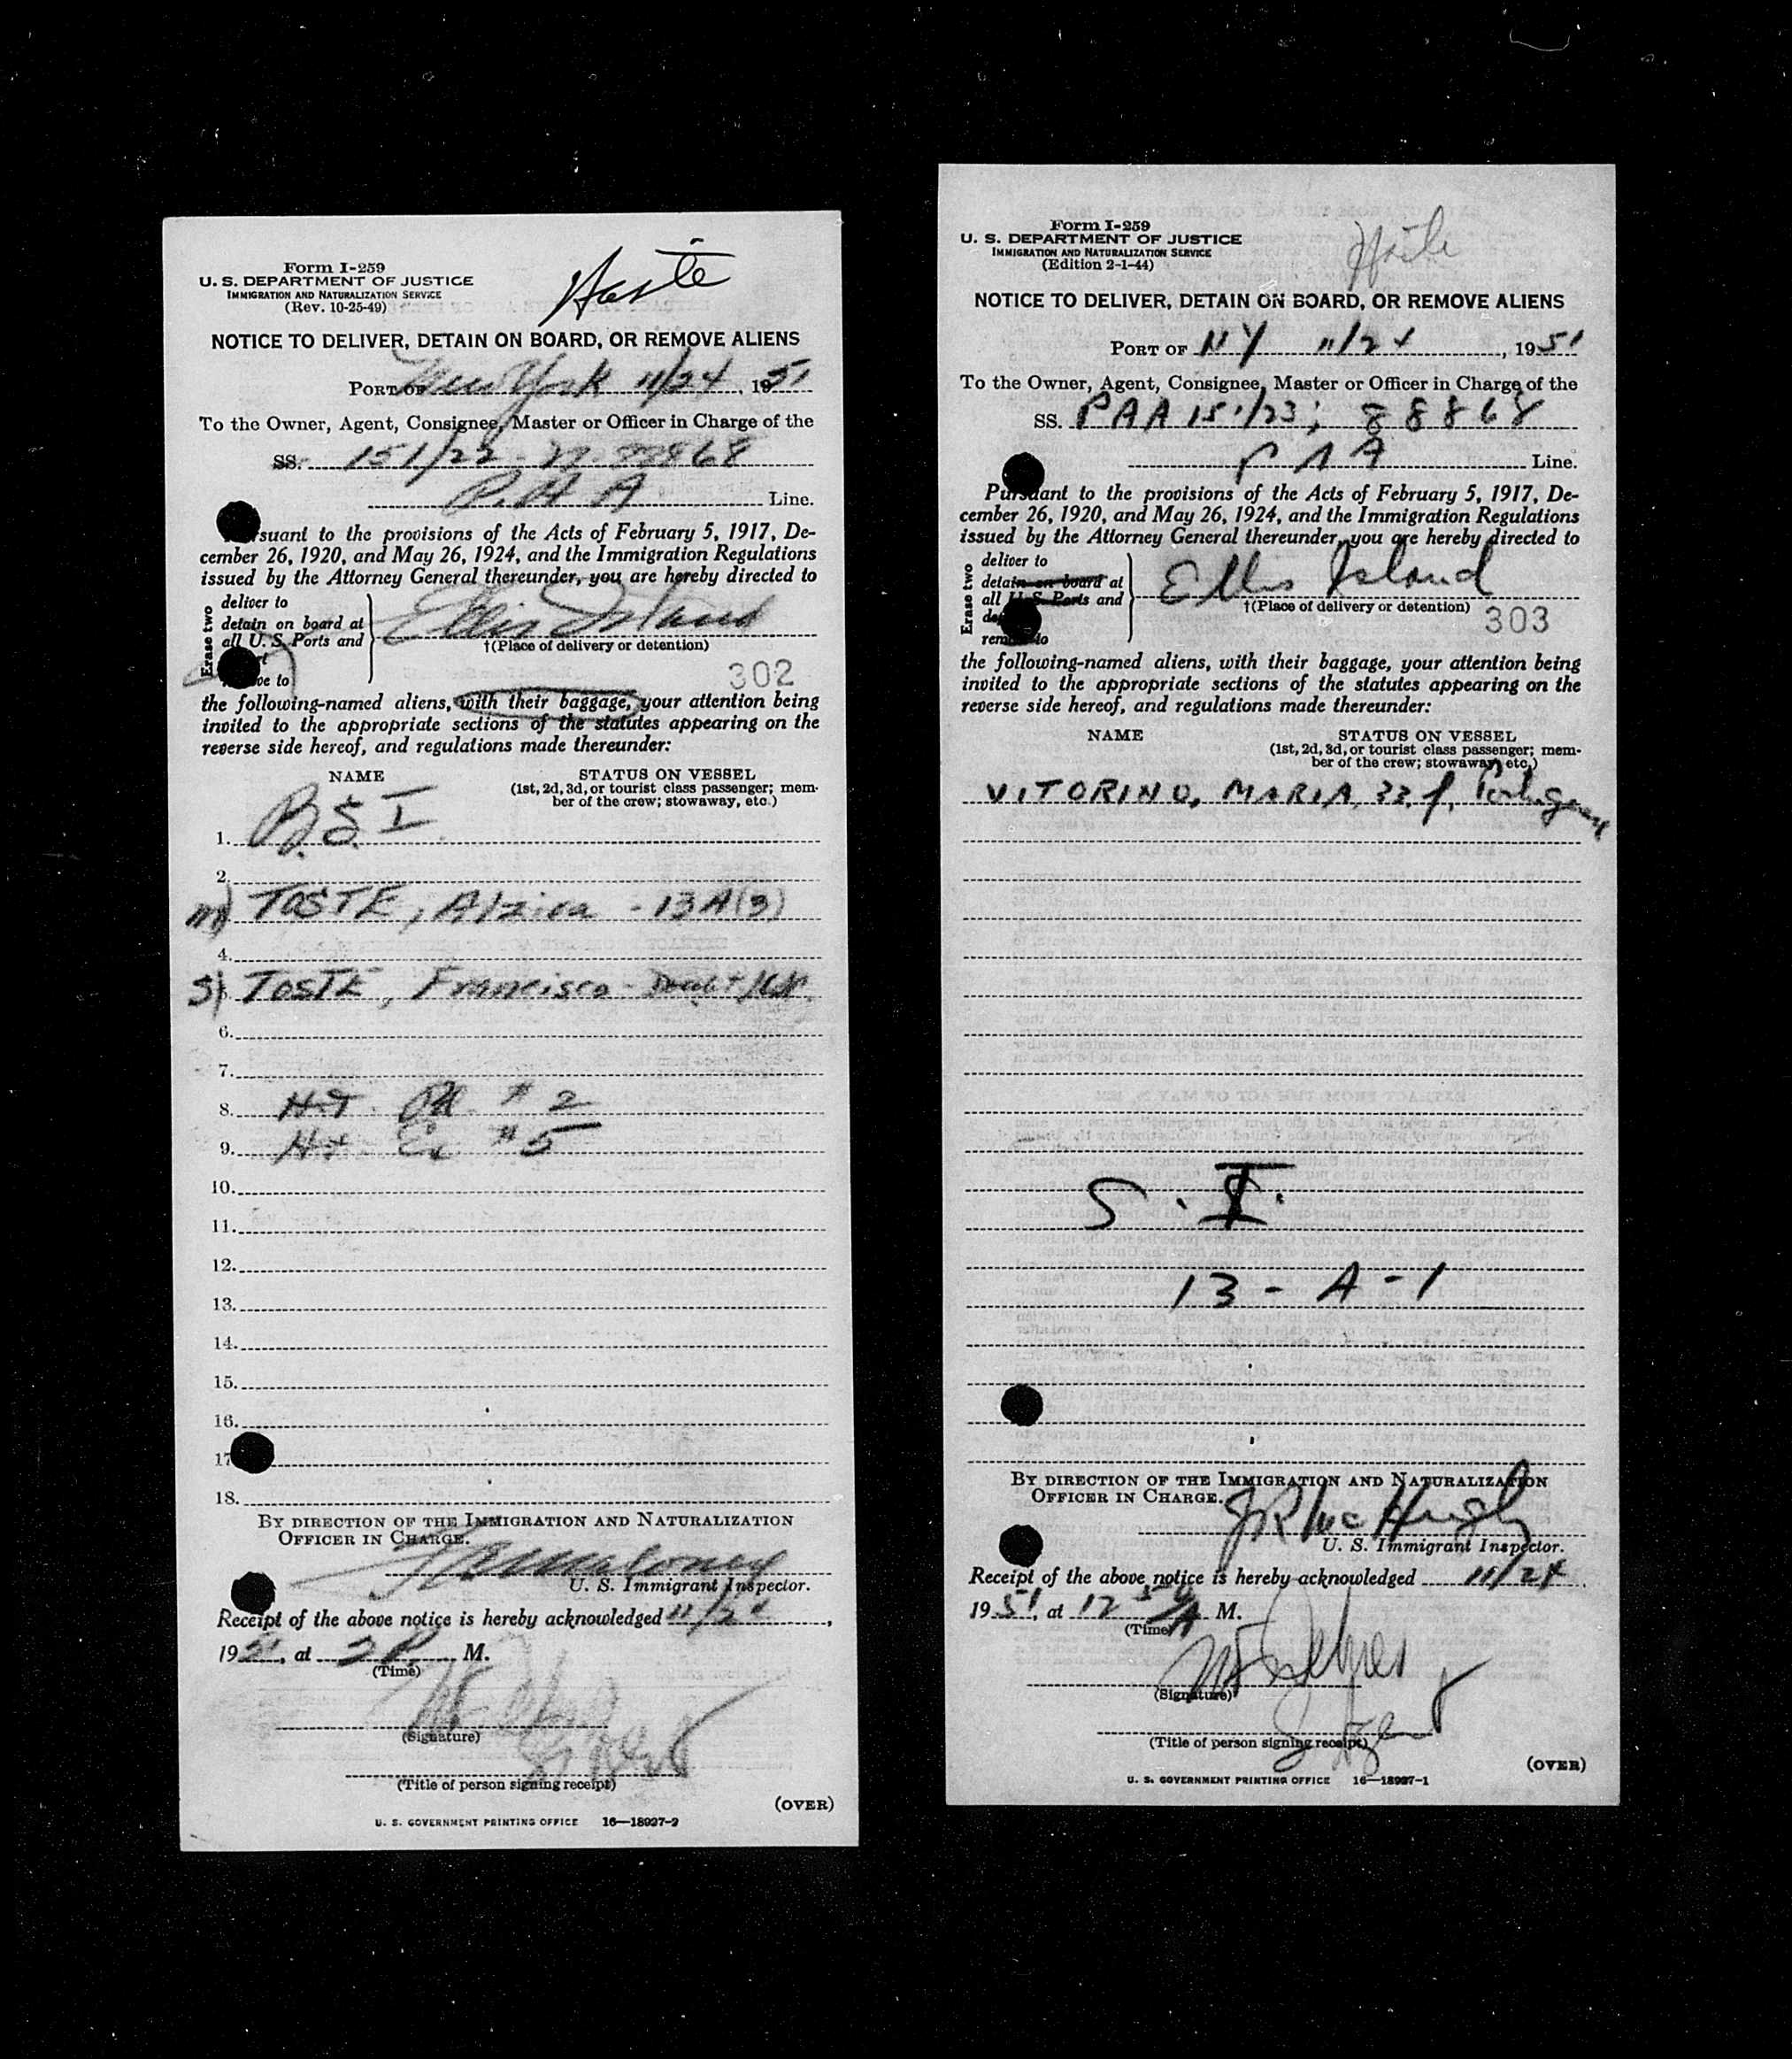 Form I-259
U. S. DEPARTMENT OF JUSTICE
IMMIGRATION AND NATURALIZATION SERVICE
(Rev. 10-25-49)
NOTICE TO DELIVER, DETAIN ON BOARD, OR REMOVE ALIENS
PORT OF New York 11/24, 1951
To the Owner, Agent, Consignee, Master or Officer in Charge of the
SS. 151/22
P.A A Line.
suant to the provisions of the Acts of February 5, 1917, De-
cember 26, 1920, and May 26, 1924, and the Immigration Regulations
issued by the Attorney General thereunder, you are hereby directed to
Erase two
deliver to
detain on board at
all U. S. Ports and
ve to
Ellis Island
†(Place of delivery or detention)
302
the following-named aliens, with their baggage, your attention being
invited to the appropriate sections of the statutes appearing on the
reverse side hereof, and regulations made thereunder:
NAME
STATUS ON VESSEL
(1st, 2d, 3d, or tourist class passenger; mem-
ber of the crew; stowaway, etc.)
1. B.S.I
2.
m) TOSTE, Alzira - 13A(3)
4.
S) TOSTE, Francisco -
6.
7.
8. # 2
9. # 5
10.
11.
12.
13.
14.
15.
16.
17
18.
BY DIRECTION OF THE IMMIGRATION AND NATURALIZATION
OFFICER IN CHARGE.
U. S. Immigrant Inspector.
Receipt of the above notice is hereby acknowledged 11/24,
1951, at M.
(Time)
(Signature)
(Title of person signing receipt)
(OVER)
U. S. GOVERNMENT PRINTING OFFICE 16—18927-2
Form I-259
U. S. DEPARTMENT OF JUSTICE
IMMIGRATION AND NATURALIZATION SERVICE
(Edition 2-1-44)
NOTICE TO DELIVER, DETAIN ON BOARD, OR REMOVE ALIENS
PORT OF NY 11/24, 1951
To the Owner, Agent, Consignee, Master or Officer in Charge of the
SS. PAA 151/23; 88868
PAA Line.
Pursuant to the provisions of the Acts of February 5, 1917, De-
cember 26, 1920, and May 26, 1924, and the Immigration Regulations
issued by the Attorney General thereunder, you are hereby directed to
Erase two
deliver to
detain on board at
all U. S. Ports and
de
remove to
Ellis Island
†(Place of delivery or detention)
303
the following-named aliens, with their baggage, your attention being
invited to the appropriate sections of the statutes appearing on the
reverse side hereof, and regulations made thereunder:
NAME
STATUS ON VESSEL
(1st, 2d, 3d, or tourist class passenger; mem-
ber of the crew; stowaway, etc.)
VITORINO, MARIA, 33, f, Portuguese
S. I.
13 - A - 1
BY DIRECTION OF THE IMMIGRATION AND NATURALIZATION
OFFICER IN CHARGE.
JR McHugh
U. S. Immigrant Inspector.
Receipt of the above notice is hereby acknowledged 11/24,
1951, at 12 A M.
(Time)
(Signature)
Agent
(Title of person signing receipt)
(OVER)
U. S. GOVERNMENT PRINTING OFFICE 16—18927-1